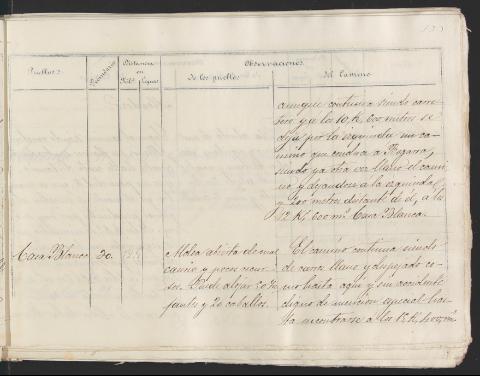 Pueblos.
Vecindario
Distancia
en
Kils. Leguas
Observaciones.
de los pueblos.
del Camino
aunque continua siendo carre-
tero y a los 10 K. 600 metros se
deja por la izquierda un ca-
mino que conduce a
siendo ya otra vez llano el cami-
no y dejandose a la izquierda,
y 200 metros distante de él, a los
12 K. 600 m. Casa Blanca.
Casa Blanca
30.
Aldea abierta de mal
caserio y pocos recur-
sos. Puede alojar 50 in-
fantes y 20 caballos.
El camino continua siendo
de carros llano y despejado co-
mo hasta aquí y sin accidente
digno de mencion especial has-
ta encontrarse a los 15 K. 400 m.